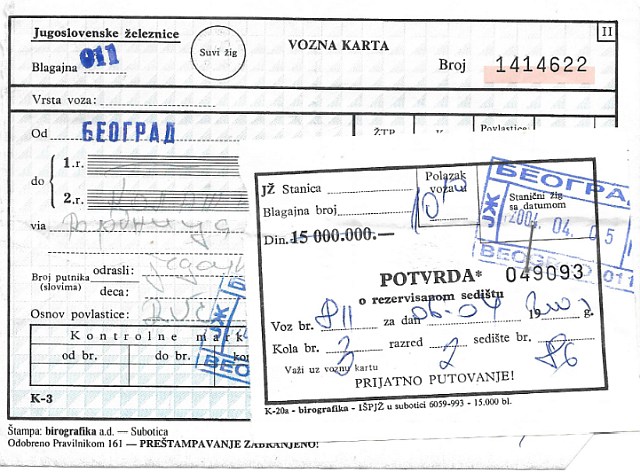 Jugoslovenske železnice
Blagajna 011
Suvi žig
VOZNA KARTA
II
Broj 1414622
Vrsta voza:
Od БЕОГРАД
ŽTP
Povlastice:
do
1.r.
2.r.
via
Broj putnika
(slovima)
odrasli:
deca:
Osnov povlastice:
Kontrolne mark
od br.
do br.
kon
K-3
Štampa: birografika a.d. — Subotica
Odobreno Pravilnikom 161 — PREŠTAMPAVANJE ZABRANJENO!
JŽ Stanica
Polazak
voza u
Blagajna broj
Din. 15 000.000.—
Stanični žig
sa datumom
БЕОГРА
ЈЖ
2004. 04. 05
БЕОГРАД 011
POTVRDA* 049093
o rezervisanom sedištu
Voz br. 811 za dan 06-04 19 g.
Kola br. 3 razred 2 sedište br. 86
Važi uz voznu kartu
PRIJATNO PUTOVANJE!
K-20a - birografika - IŠPJŽ u subotici 6059-993 - 15.000 bl.